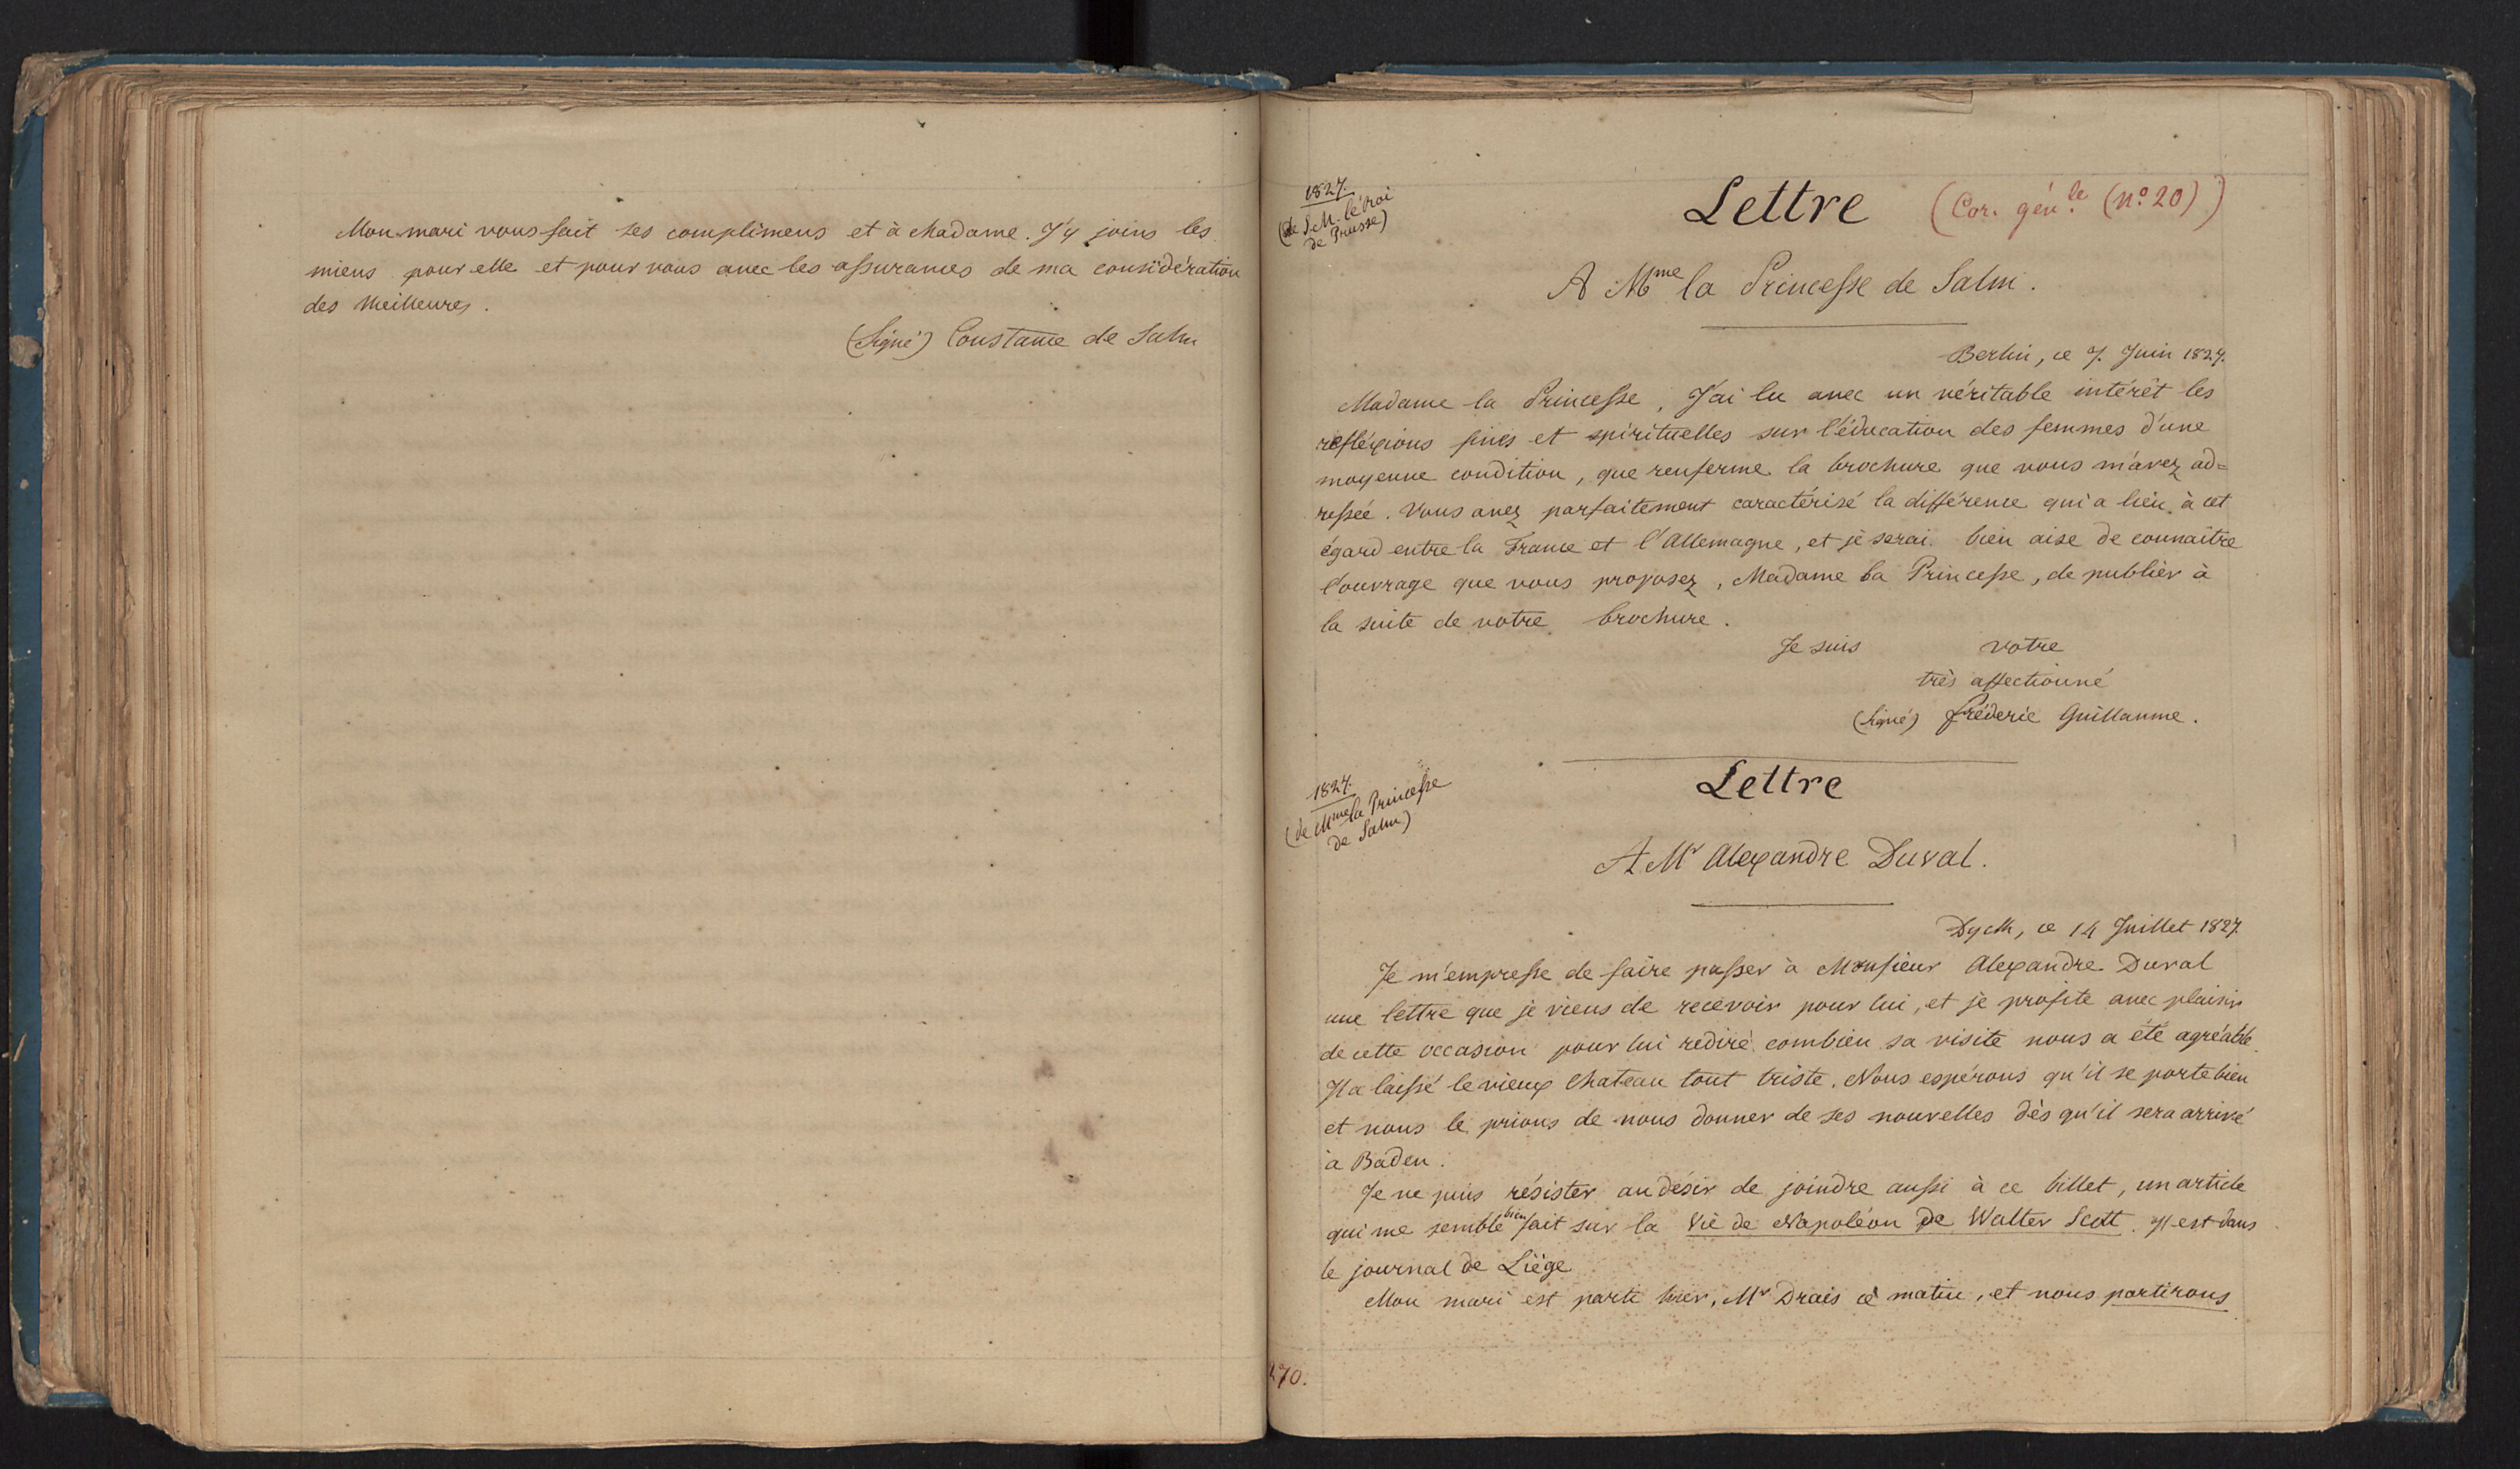 Mon mari vous fait ses complimens et à Madame. J'y joins les
miens pour elle et pour vous avec les assurances de ma considération
des meilleures.
(Signé) Constance de Salm
1827.
(de S. M. le roi
de Prusse)
Lettre (Cor. gén.le (nº 20))
A Mme la Princesse de Salm.
Berlin, ce 7. Juin 1827.
Madame la Princesse, J'ai lu avec un véritable intérêt les
réfléxions fines et spirituelles sur l'éducation des femmes d'une
moyenne condition, que renferme la brochure que vous m'avez ad=
ressée. Vous avez parfaitement caractérisé la différence qui a lieu à cet
égard entre la France et l'Allemagne, et je serai bien aise de connaître
l'ouvrage que vous proposez, Madame la Princesse, de publier à
la suite de votre brochure.
Je suis votre
très affectionné
(signé) fréderic Guillaume.
Lettre
1827.
(de Mme la Princesse
de Salm)
A Mr Alexandre Duval.
Dyck, ce 14 Juillet 1827.
Je m'empresse de faire passer à Monsieur Alexandre Duval
une lettre que je viens de recevoir pour lui, et je profite avec plaisir
de cette occasion pour lui redire combien sa visite nous a été agréable.
Il a laissé le vieux chateau tout triste. Nous espérons qu'il se porte bien
et nous le prions de nous donner de ses nouvelles dès qu'il sera arrivé
à Baden.
Je ne puis résister au désir de joindre aussi à ce billet, un article
qui me semble bien fait sur la Vie de Napoléon de Walter Scott. Il est dans
le journal de Liège
Mon mari est parti hier, Mr Drais ce matin, et nous partirons
270.